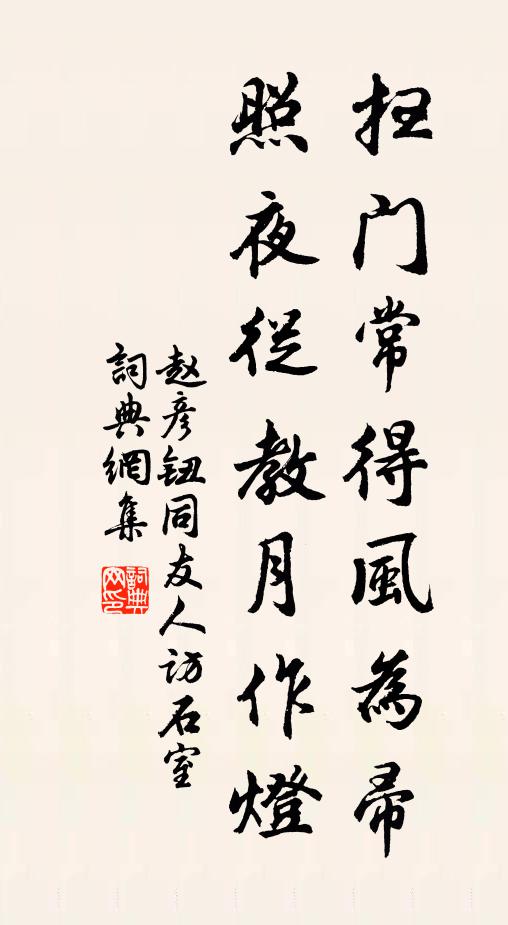 扫门常得風為帚
照夜從教月作燈
赵彦钮同友人访石室
詞典網集
詞典网印